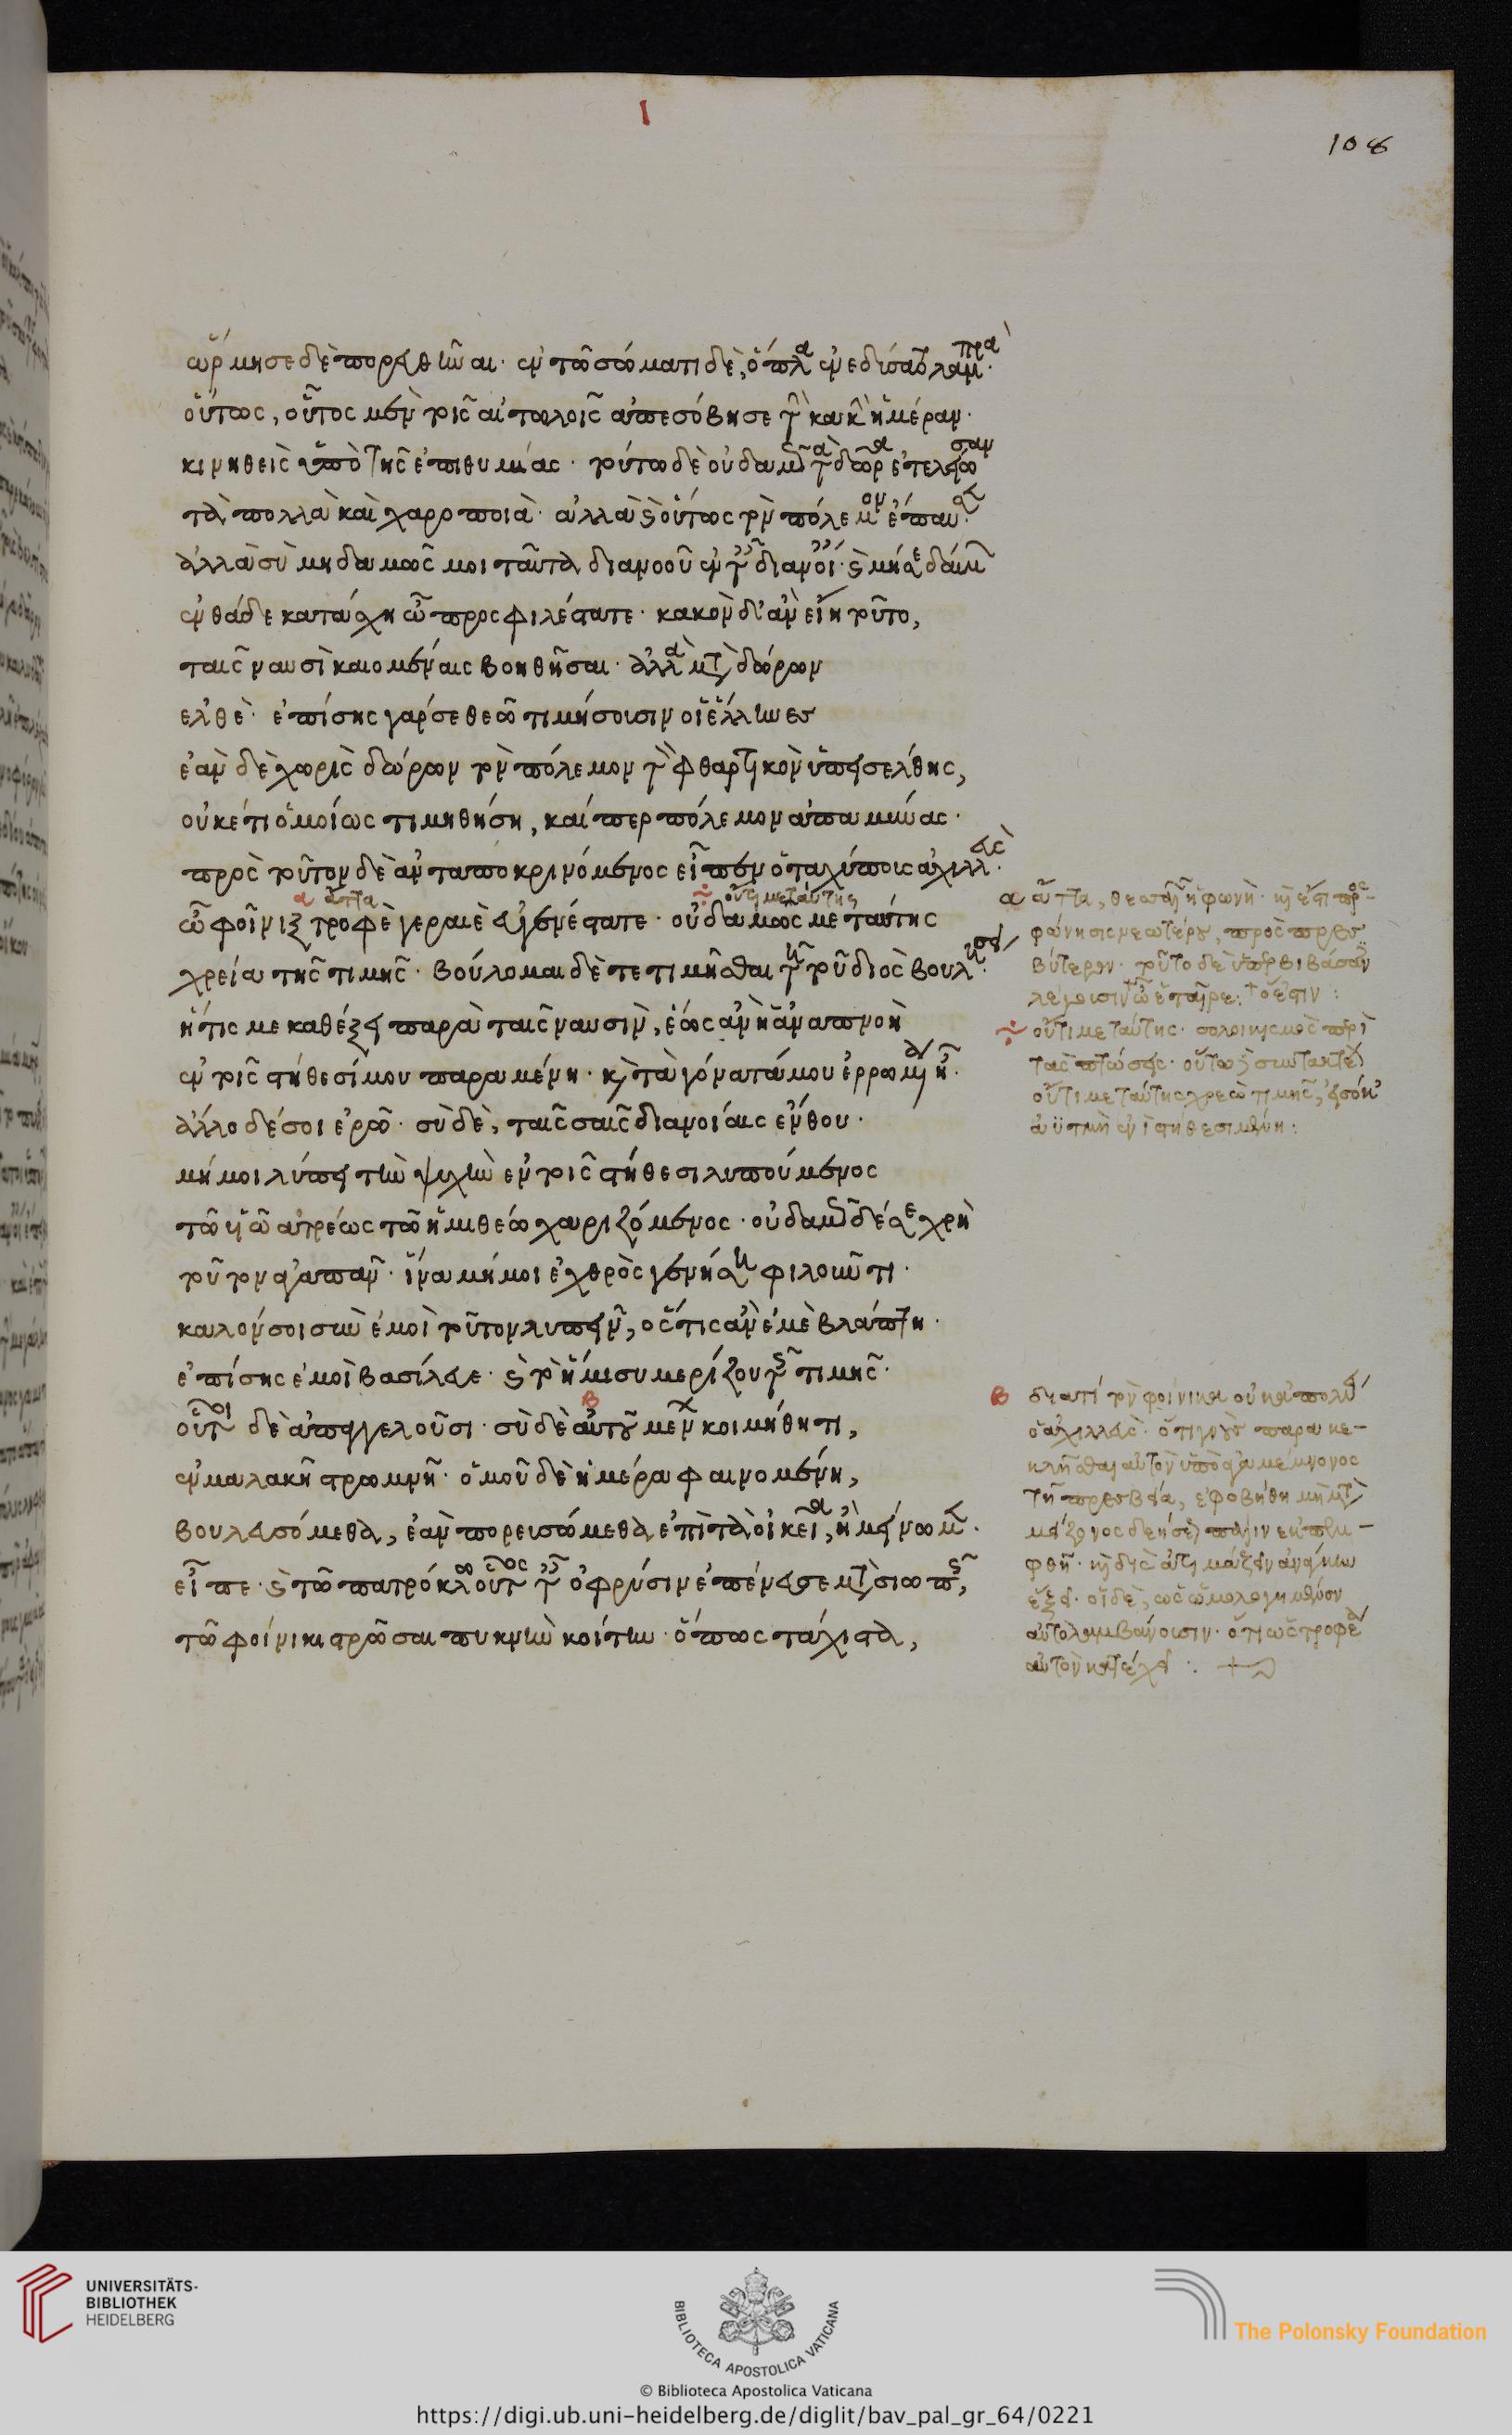 Ι
108
ὥρμησε δὲ πορευθῆναι· ἐν τῶ σώματι δὲ, ὅπλα ἐνεδύσατο λαμπρά·
οὕτως, οὗτος μὲν τοῖς αἰτωλοῖς ἀπεσόβησε τὴν κακὴν ἡμέραν·
κινηθεὶς ὑπὸ τῆς ἐπιθυμίας· τούτω δὲ οὐδαμῶς τὰ δῶρα ἐτελείωσαν
τὰ πολλὰ καὶ χαροποιά· ἀλλὰ καὶ οὕτως τὸν πόλεμον ἔπαυσε·
ἀλλὰ σὺ μηδαμῶς μοι ταῦτα διανοοῦ ἐν ταῖς διανοίαις· καὶ μή σε δαίμων
ἐνθάδε κατάσχη ὦ προσφιλέστατε· κακὸν δ' ἂν εἴη τοῦτο,
ταῖς ναυσὶ καιομέναις βοηθῆσαι· ἀλλὰ μετὰ δώρων
ἐλθὲ· ἐπίσης γάρ σε θεῶ τιμήσουσιν οἱ ἕλληνες
ἐὰν δὲ χωρὶς δώρων τὸν πόλεμον τὸν φθαρτικὸν ὑπεισέλθης,
οὐκέτι ὁμοίως τιμηθήση, καίπερ πόλεμον ἀπαμύνας·
πρὸς τοῦτον δὲ ἀνταποκρινόμενος εἶπεν ὁ ταχύπους ἀχιλλεὺς·
α ἄττα ÷ οὔτι με ταύτης
ὦ φοῖνιξ τροφὲ γεραιὲ εὐγενέστατε· οὐδαμῶς με ταύτης
χρεία τῆς τιμῆς· βούλομαι δὲ τετιμῆσθαι τῆ τοῦ διὸς βουλήσει·
ἥτις με καθέξει παρὰ ταῖς ναυσὶν, ἕως ἂν ἡ ἀναπνοὴ
ἐν τοῖς στήθεσί μου παραμένη· καὶ τὰ γόνατά μου ἐρρωμένα ἦ·
ἄλλο δέ σοι ἐρῶ· σὺ δὲ, ταῖς σαῖς διανοίαις ἔνθου·
μή μοι λύπει τὴν ψυχὴν ἐν τοῖς στήθεσι λυπούμενος
τῶ υἱῶ ἀτρέως τῶ ἡμιθέω χαριζόμενος· οὐδαμῶς δέ σε χρὴ
τοῦτον ἀγαπᾶν· ἵνα μή μοι ἐχθρὸς γένη τῶ φιλοῦντι·
καλόν σοι σὺν ἐμοὶ τοῦτον λυπεῖν, ὅστις ἂν ἐμὲ βλάπτη·
ἐπίσης ἐμοὶ βασίλευε· καὶ τὸ ἥμισυ μερίζου τῆς τιμῆς·
β
οὗτοι δὲ ἀπαγγελοῦσι· σὺ δὲ αὐτοῦ μένων κοιμήθητι,
ἐν μαλακῆ στρωμνῆ· ὁμοῦ δὲ ἡμέρα φαινομένη,
βουλευσόμεθα, ἐὰν πορευσώμεθα ἐπὶ τὰ οἰκεῖα, ἢ μείνωμεν·
εἶπε· καὶ τῶ πατρόκλω οὗτος ταῖς ὀφρύσιν ἐπένευσε μετὰ σιωπῆς,
τῶ φοίνικι στρῶσαι πυκνὴν κοίτην· ὅπως τάχιστα,
α ἄττα, θεσσαλῶν ἡ φωνὴ· καὶ ἔστι προσ-
φώνησις νεωτέρου, πρὸς πρεσ
βύτερον· τοῦτο δὲ ὑπερβιβάσαν
λέγουσιν ὦ ἑταῖρε: ὅ ἐστιν:
÷ οὔτι με ταύτης· σολοικισμὸς περὶ
τὰς πτώσεις· οὕτω καὶ συντακτέον
οὔτι με ταύτης χρεὼ τιμῆς, εἰσόκ'
ἀϋτμὴ ἐνὶ στήθεσι μένη:
β διατί τὸν φοίνικα οὐκ ἀπολύει
ὁ ἀχιλλεύς· ὅτι γνοὺς παρακε-
κλῆσθαι αὐτὸν ὑπὸ ἀγαμέμνονος
τῆ πρεσβεία, ἐφοβήθη μὴ μετὰ
μείζονος δεήσεως πάλιν ἐκπεμ-
φθῆ· καὶ δὶς ἀτιμάζειν ἀνάγκην
ἕξει· οἱ δὲ, ὡς ὡμολογημένον
αὐτὸ λαμβάνουσιν· ὅτι ὡς τροφέα
αὐτὸν κατέχει:
UNIVERSITÄTS-
BIBLIOTHEK
HEIDELBERG
BIBLIOTECA APOSTOLICA VATICANA
© Biblioteca Apostolica Vaticana
The Polonsky Foundation
https://digi.ub.uni-heidelberg.de/diglit/bav_pal_gr_64/0221